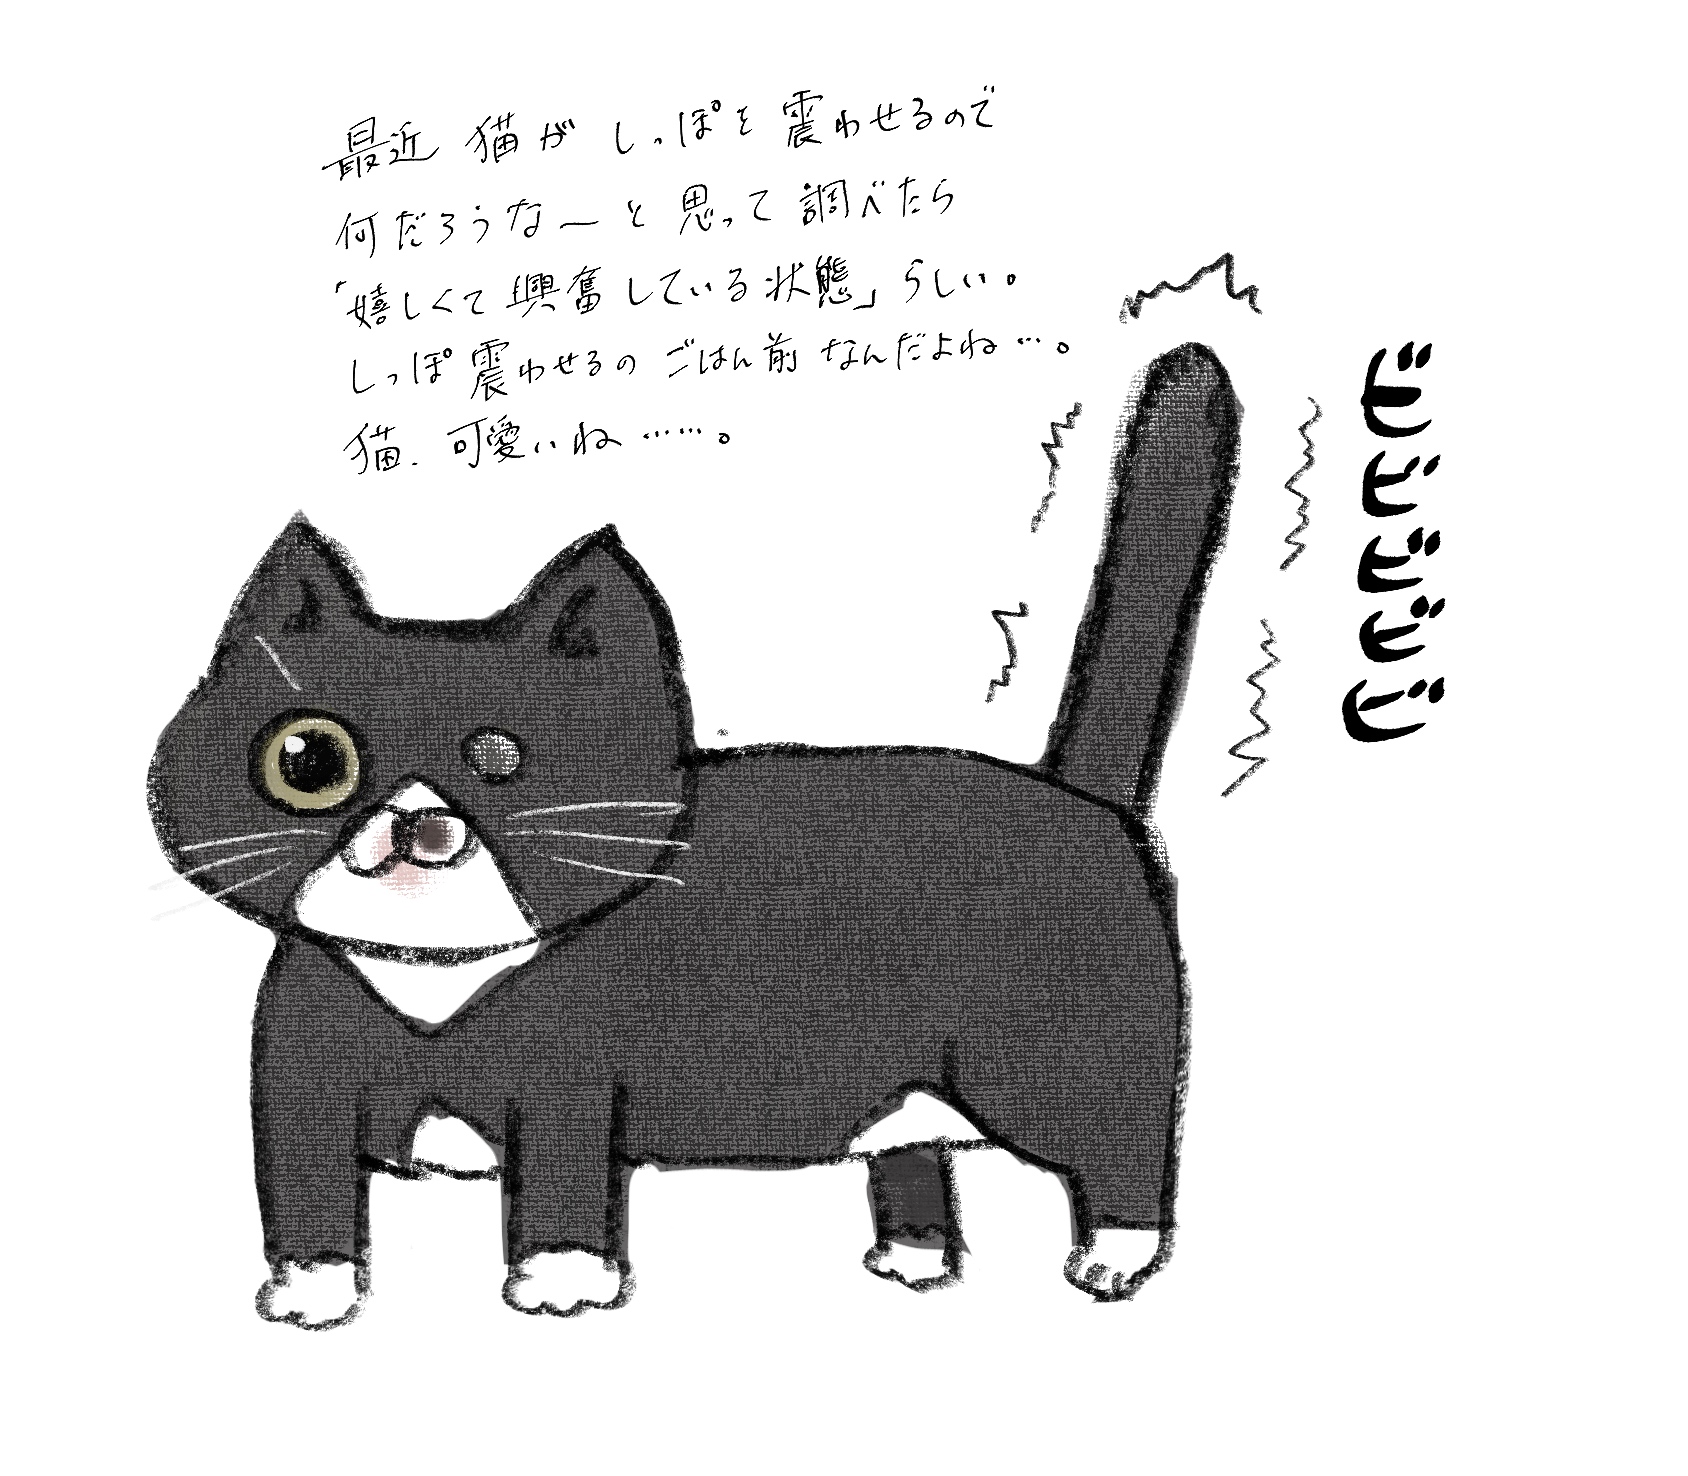 最近 猫が しっぽを 震わせるので
何だろうなーと 思って 調べたら
「嬉しくて興奮している状態」らしい。
しっぽ震わせるの ごはん前 なんだよね…。
猫、可愛いね……。
ビビビビビ